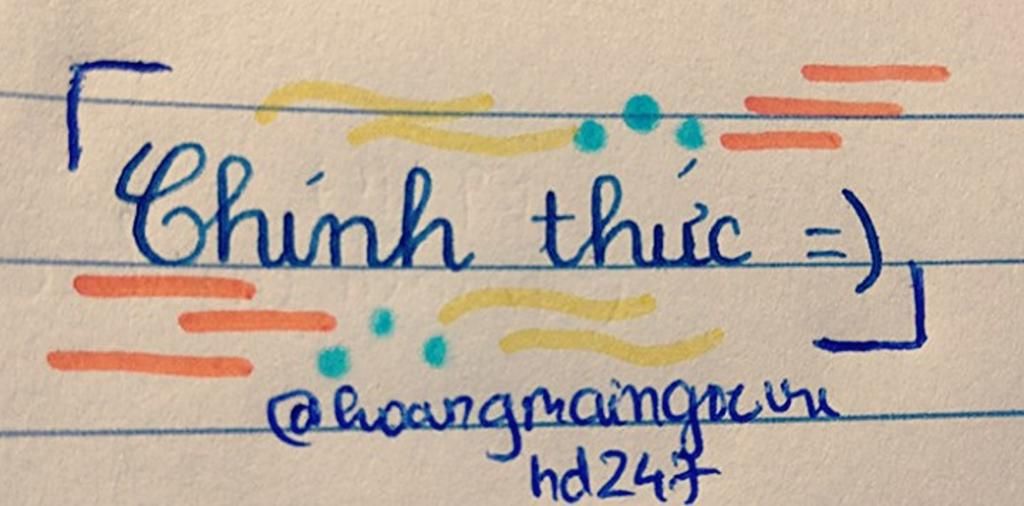 Chính thức =)
@hoangmaingocvu
hd247